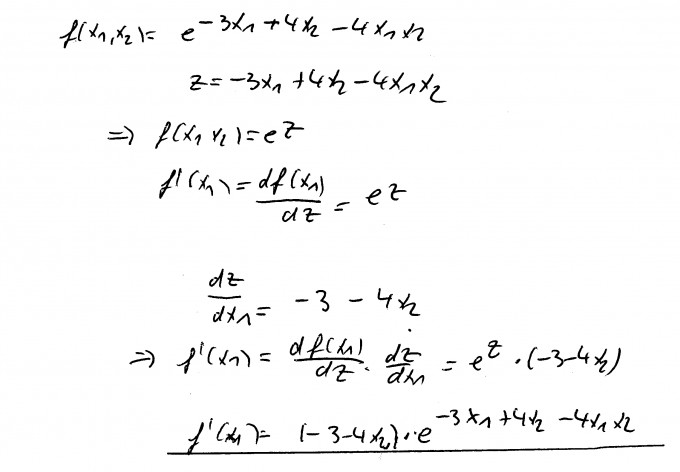 f(x₁,x₂)= e^(-3x₁+4x₂-4x₁x₂)
z=-3x₁+4x₂-4x₁x₂
=> f(x₁x₂)=e^z
f'(x₁)=df(x₁)/dz=e^z
dz/dx₁=-3-4x₂
=> f'(x₁)=df(x₁)/dz·dz/dx₁=e^z·(-3-4x₂)
f'(x₁)=(-3-4x₂)·e^(-3x₁+4x₂-4x₁x₂)